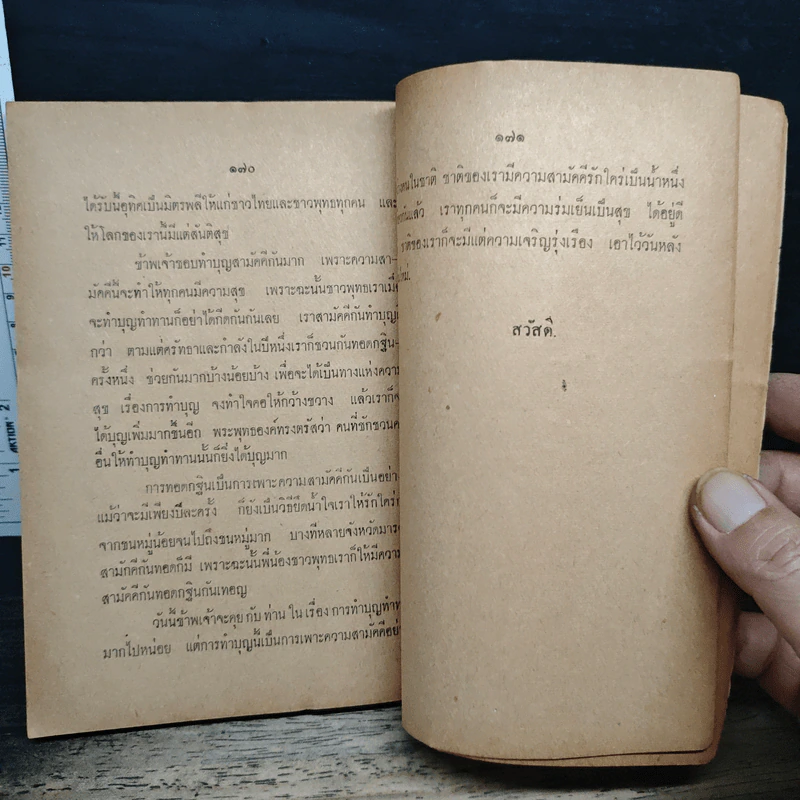 ๑๗๐
ได้รับน้อุทิศเป็นมิตรพลีให้แก่ชาวไทยและชาวพุทธทุกคน และ
ให้โลกของเรานี้มีแต่สันติสุข
ข้าพเจ้าชอบทำบุญสามัคคีกันมาก เพราะความสา-
มัคคีนี้จะทำให้ทุกคนมีความสุข เพราะฉะนั้นชาวพุทธเราเมื่
จะทำบุญทำทานก็อย่าได้กีดกันกันเลย เราสามัคคีกันทำบุญ
กว่า ตามแต่ศรัทธาและกำลังในปีหนึ่งเราก็ชวนกันทอดกฐิน-
ครั้งหนึ่ง ช่วยกันมากบ้างน้อยบ้าง เพื่อจะได้เป็นทางแห่งความ
สุข เรื่องการทำบุญ จงทำใจคอให้กว้างขวาง แล้วเราก็จ
ได้บุญเพิ่มมากขึ้นอีก พระพุทธองค์ทรงตรัสว่า คนที่ชักชวนค
อื่นให้ทำบุญทำทานนั้นก็ยิ่งได้บุญมาก
การทอดกฐินเป็นการเพาะความสามัคคีกันเป็นอย่า
แม้ว่าจะมีเพียงปีละครั้ง ก็ยังเป็นวิธียึดน้ำใจเราให้รักใคร่ก
จากชนหมู่น้อยจนไปถึงชนหมู่มาก บางทีหลายจังหวัดมาร
สามัคคีกันทอดก็มี เพราะฉะนั้นพี่น้องชาวพุทธเราก็ให้มีความ
สามัคคีกันทอดกฐินกันเทอญ
วันนี้ข้าพเจ้าจะคุย กับ ท่าน ใน เรื่อง การทำบุญทำท
มากไปหน่อย แต่การทำบุญนี้เป็นการเพาะความสามัคคีอย่า
๑๗๑
คนในชาติ ชาติของเรามีความสามัคคีรักใคร่เป็นน้ำหนึ่ง
กันแล้ว เราทุกคนก็จะมีความร่มเย็นเป็นสุข ได้อยู่ดี
ชาติของเราก็จะมีแต่ความเจริญรุ่งเรือง เอาไว้วันหลัง
ใหม่.
สวัสดี.